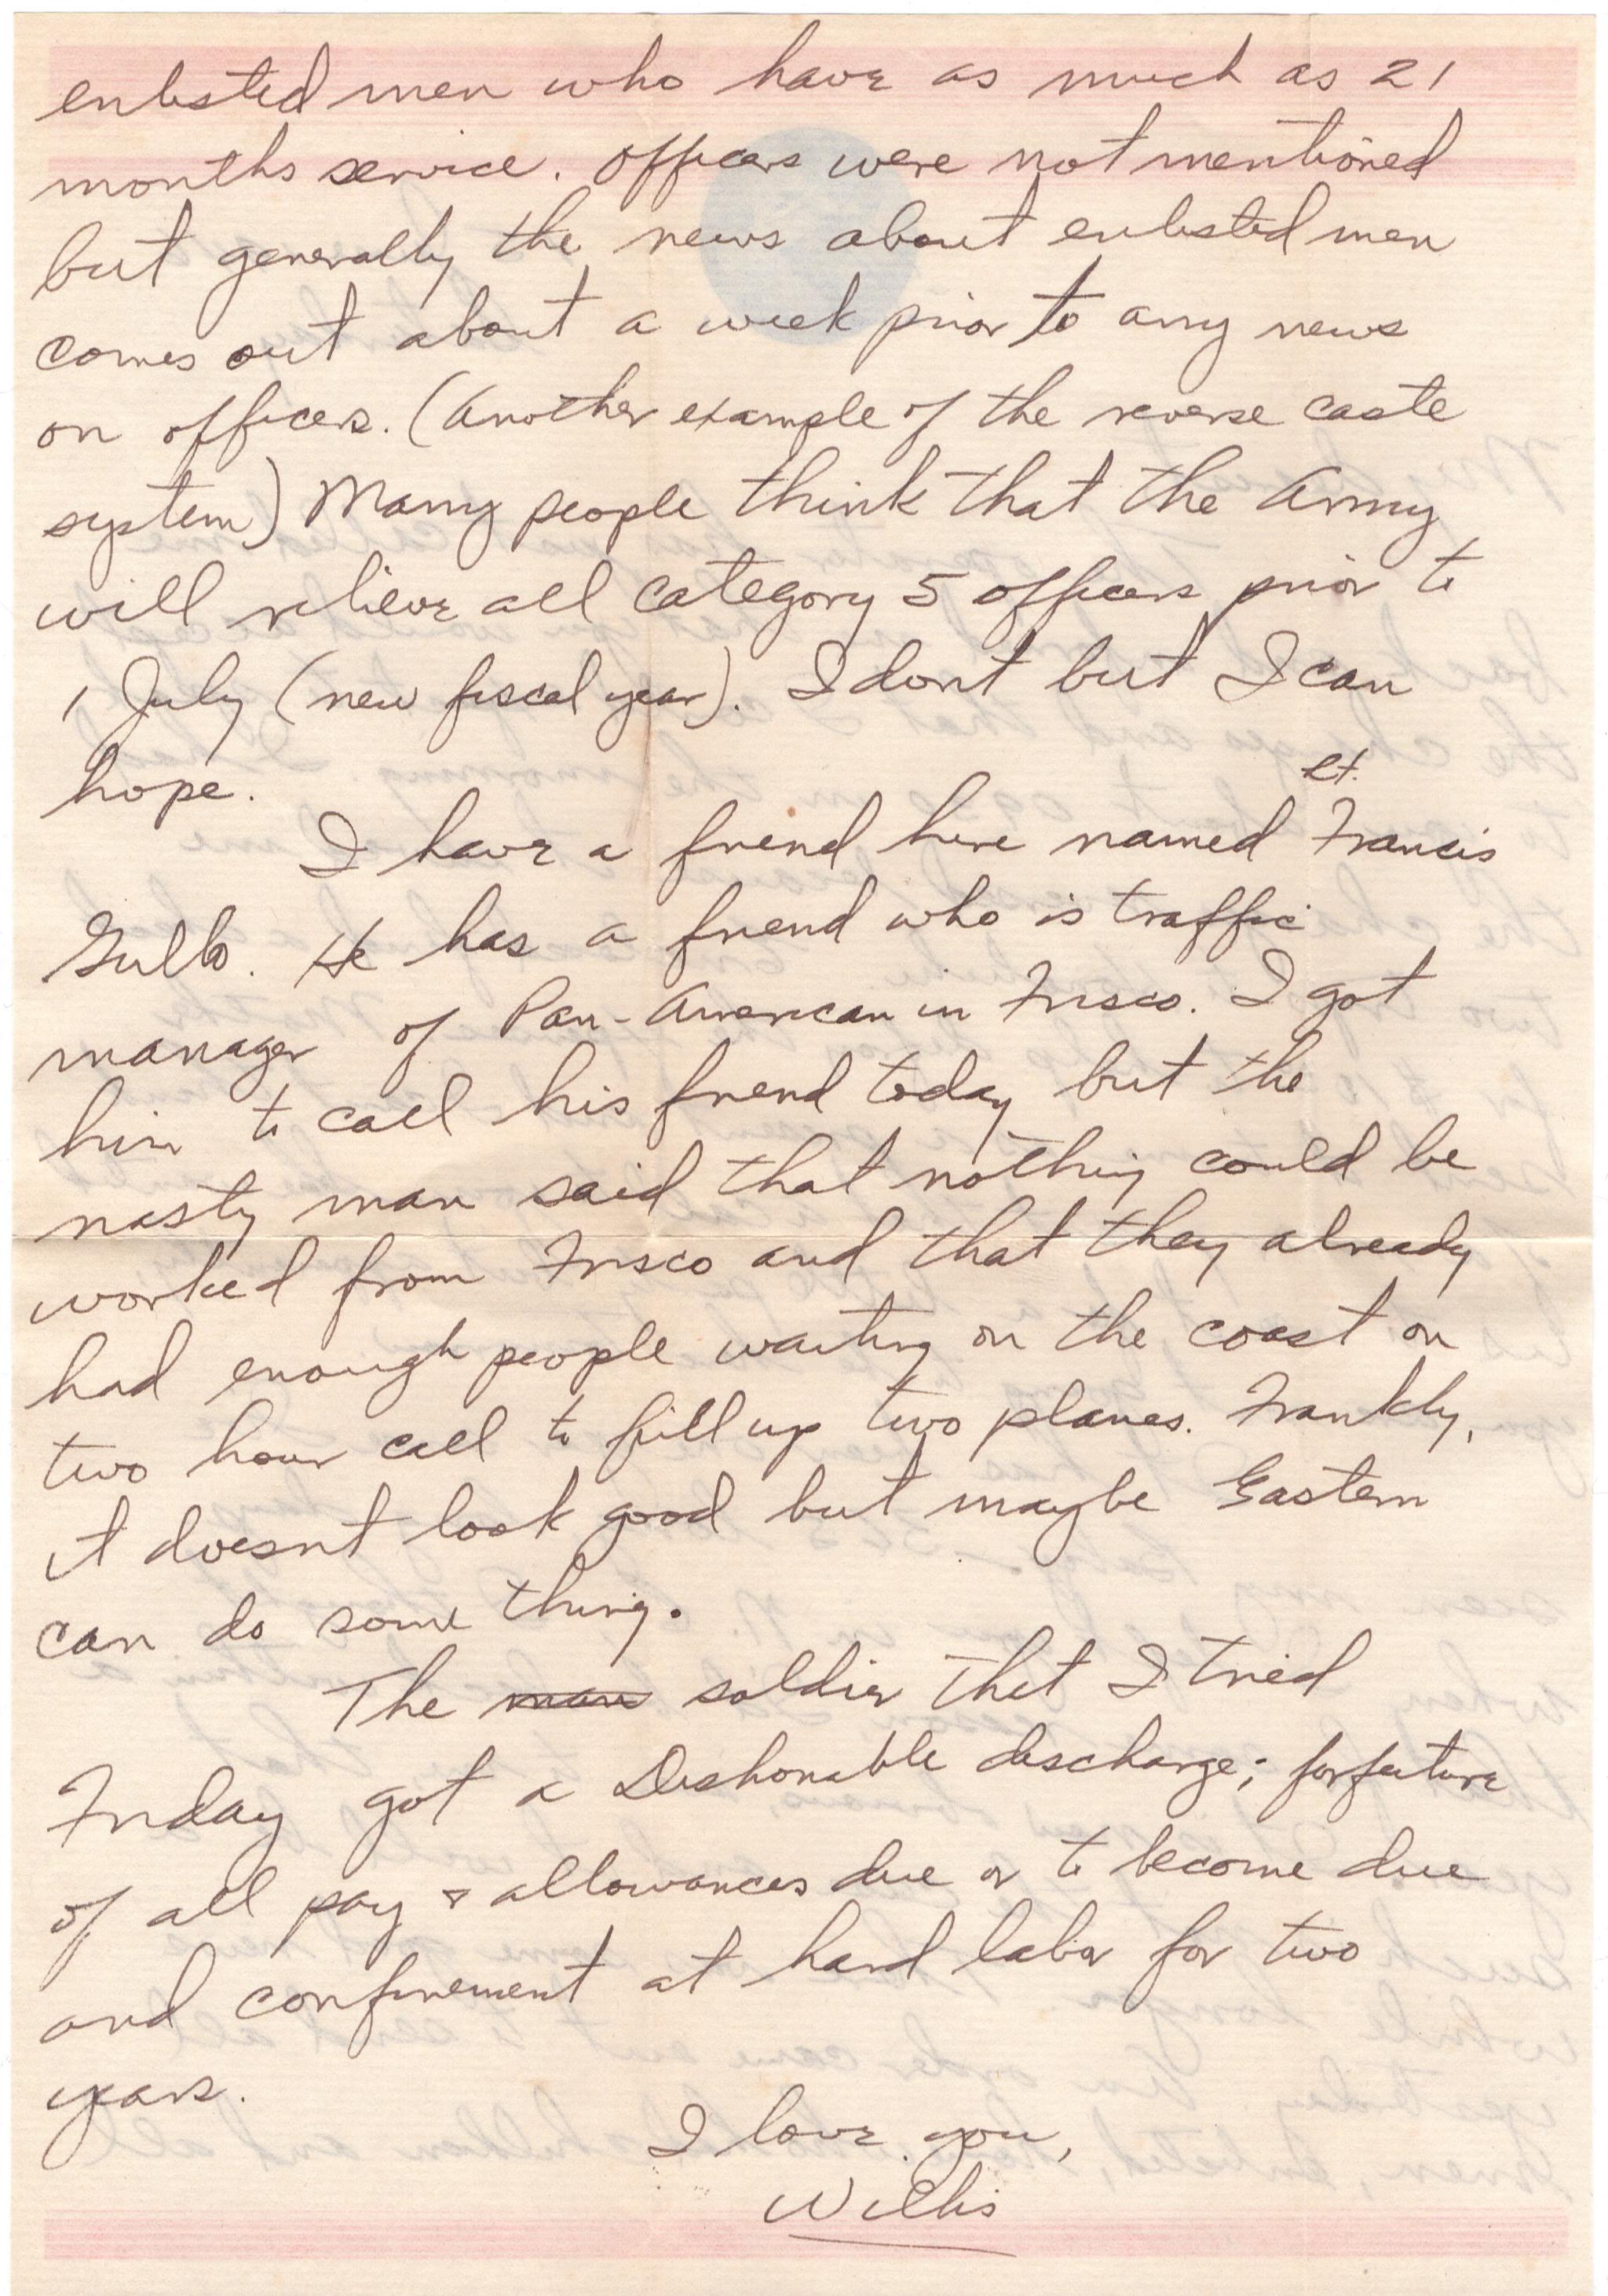 enlisted men who have as much as 21
months service. Officers were not mentioned
but generally the news about enlisted men
comes out about a week prior to any news
on officers. (Another example of the reverse caste
system) Many people think that the Army
will relieve all category 5 officers prior to
1 July (new fiscal year). I dont but I can
hope.
Lt.
I have a friend here named Francis
Gullo. He has a friend who is traffic
manager of Pan-American in Frisco. I got
him to call his friend today but the
nasty man said that nothing could be
worked from Frisco and that they already
had enough people waiting on the coast on
two hour call to fill up two planes. Frankly,
it doesnt look good but maybe Eastern
can do some thing.
The man soldier that I tried
Friday got a Dishonable discharge; forfeiture
of all pay & allowances due or to become due
and confinement at hard labor for two
years.
I love you,
Willis